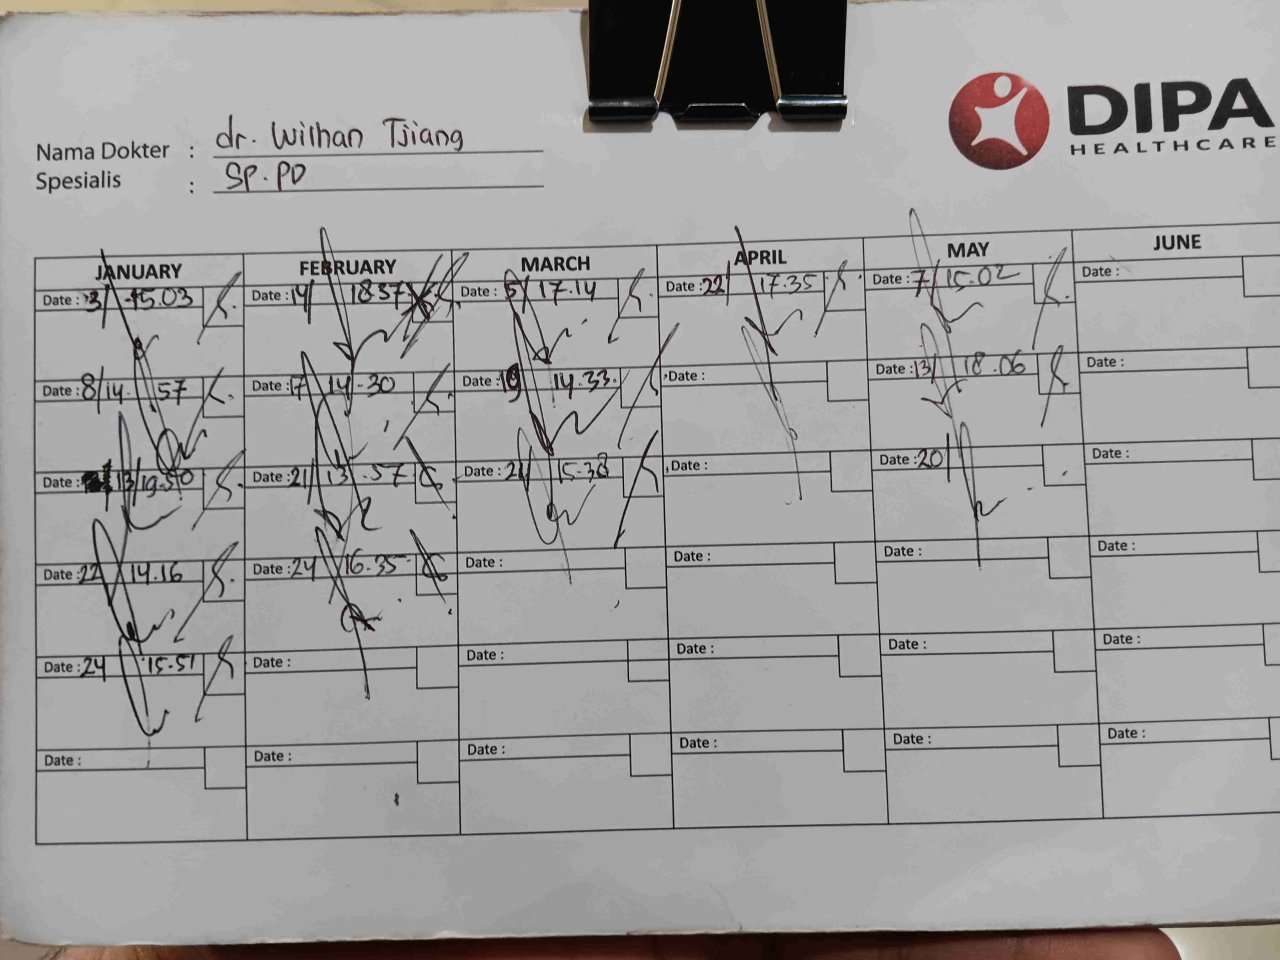 DIPA
HEALTHCARE
Nama Dokter : dr. Wilhan Tjiang
Spesialis : SP.PD
JANUARY FEBRUARY MARCH APRIL MAY JUNE
Date : 3/ 15.03 Date : 14/ 18.37 Date : 5/ 17.14 Date : 22/ 17.35 Date : 7/ 15.02 Date :
Date : 8/ 14.57 Date : 17 14.30 Date : 19 14.33 Date : Date : 13/ 18.06 Date :
Date : 13/ 19.50 Date : 21/ 13.57 Date : 15.38 Date : Date : 20/ Date :
Date : 22 14.16 Date : 24 16.35 Date : Date : Date : Date :
Date : 24 15.51 Date : Date : Date : Date : Date :
Date : Date : Date : Date : Date : Date :